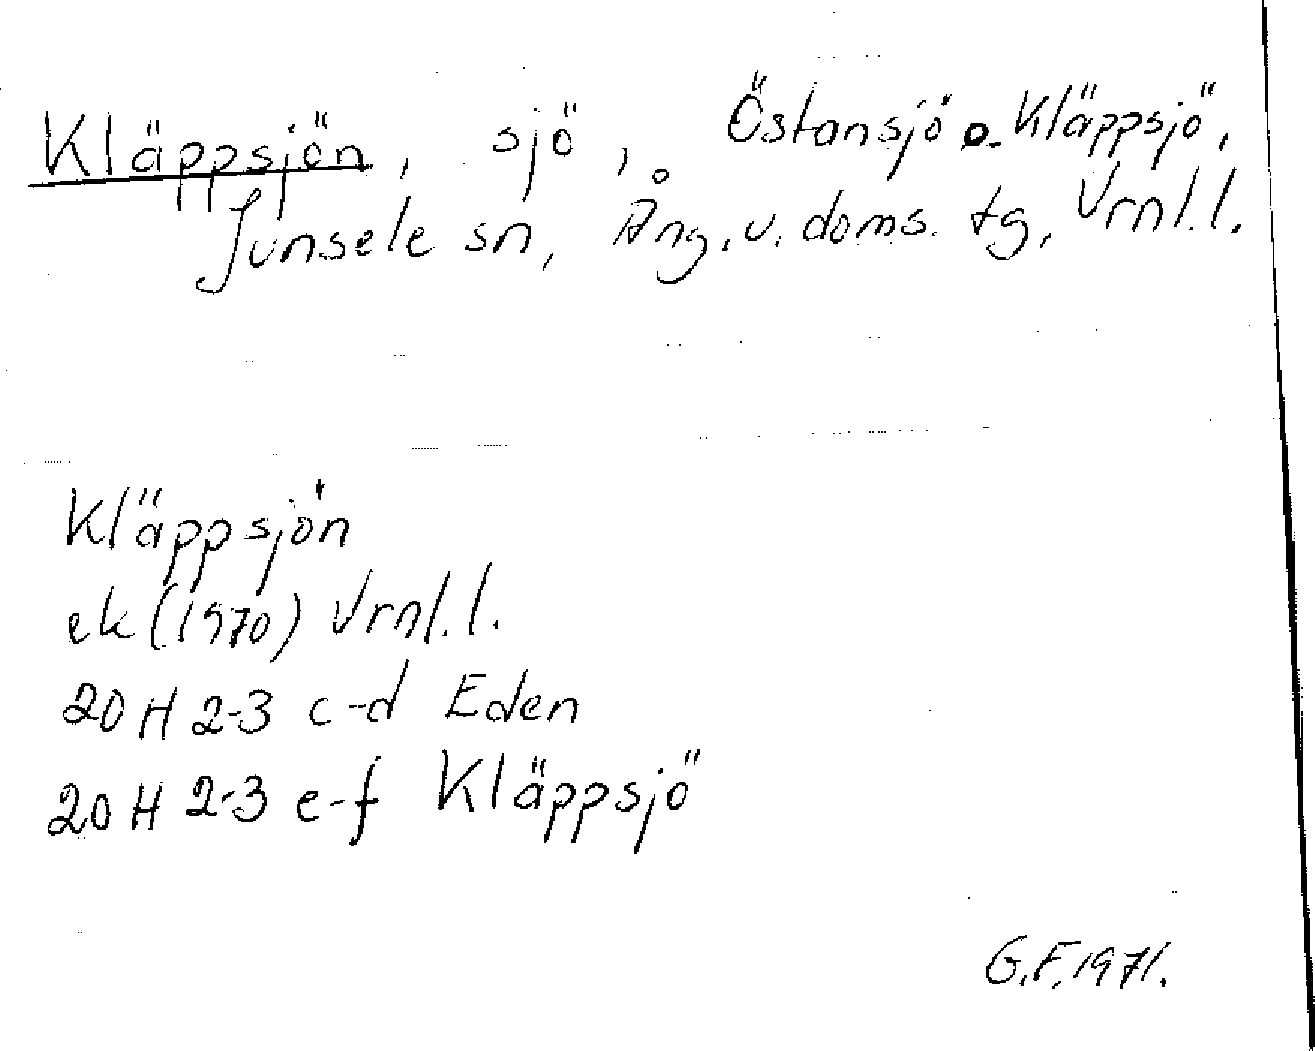 Kläppsjön, sjö, Östansjö o. Kläppsjö,
Junsele sn, Ång. v. doms. tg, Vrnl.l.
Kläppsjön
ek (1970) Vrnl.l.
20 H 2-3 c-d Eden
20 H 2-3 e-f Kläppsjö
G.F. 1971.